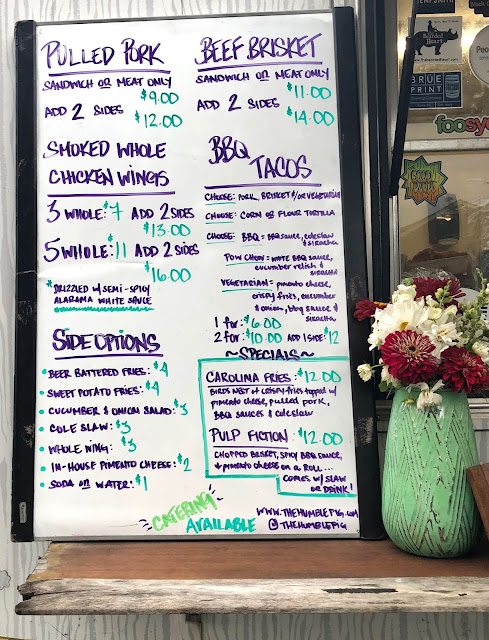 PULLED PORK
SANDWICH OR MEAT ONLY
$9.00
ADD 2 SIDES
$12.00
BEEF BRISKET
SANDWICH OR MEAT ONLY
$11.00
ADD 2 SIDES
$14.00
SMOKED WHOLE
CHICKEN WINGS
3 WHOLE: $7 ADD 2 SIDES
$13.00
5 WHOLE: $11 ADD 2 SIDES
$16.00
*DRIZZLED W/ SEMI-SPICY
ALABAMA WHITE SAUCE
BBQ
TACOS
CHOOSE: PORK, BRISKET &/OR VEGETARIAN
CHOOSE: CORN OR FLOUR TORTILLA
CHOOSE: BBQ = BBQ SAUCE, COLESLAW
& SIRACHA
POW CHOW = WHITE BBQ SAUCE,
CUCUMBER RELISH &
SIRACHA
VEGETARIAN = PIMENTO CHEESE,
CRISPY FRIES, CUCUMBER
& ONION, BBQ SAUCE &
SIRACHA
1 for: $6.00
2 for: $10.00 ADD 1 SIDE: $12
SIDE OPTIONS
• BEER BATTERED FRIES: $4
• SWEET POTATO FRIES: $4
• CUCUMBER & ONION SALAD: $3
• COLE SLAW: $3
• WHOLE WING: $3
• IN-HOUSE PIMENTO CHEESE: $2
• SODA OR WATER: $1
~SPECIALS~
CAROLINA FRIES: $12.00
BIRDS NEST OF CRISPY FRIES TOPPED W/
PIMENTO CHEESE, PULLED PORK,
BBQ SAUCES & COLESLAW
PULP FICTION: $12.00
CHOPPED BRISKET, SPICY BBQ SAUCE,
& PIMENTO CHEESE ON A ROLL...
COMES W/ SLAW
OR DRINK!
CATERING
AVAILABLE
WWW.THEHUMBLEPIG.COM
@THEHUMBLEPIG
The Bearded Heart
BRUE
PRINT
foosy